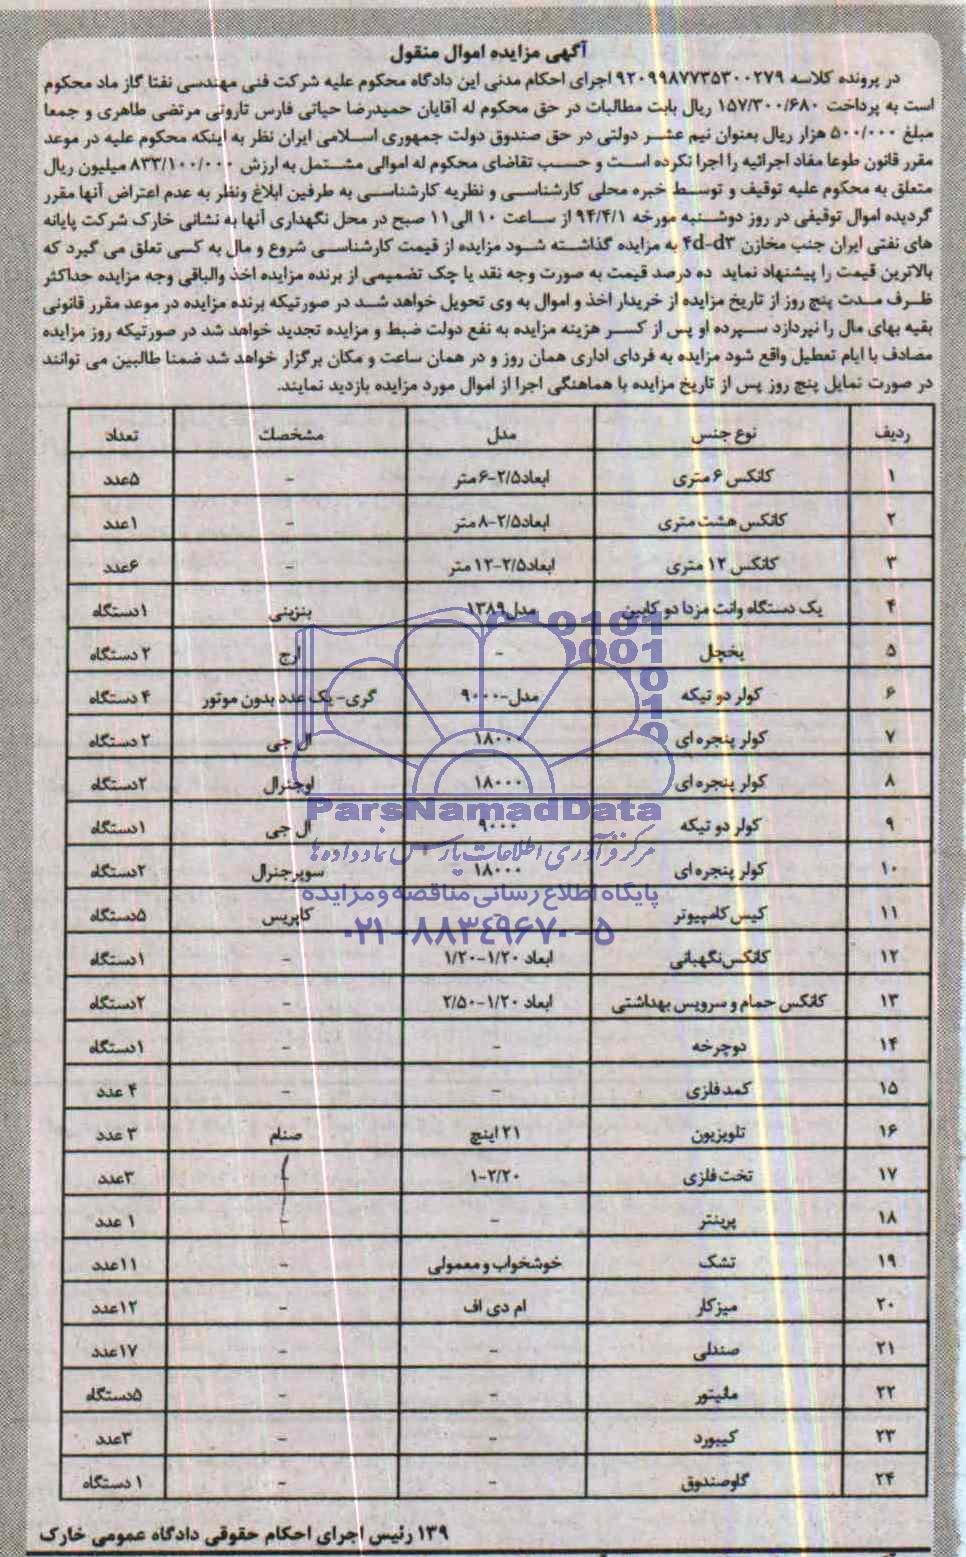 آگهی مزایده اموال منقول
در پرونده کلاسه ۹۲۰۹۹۸۷۷۳۵۳۰۰۲۷۹ اجرای احکام مدنی این دادگاه محکوم علیه شرکت فنی مهندسی نفتا گاز ماد محکوم
است به پرداخت ۱۵۷/۳۰۰/۶۸۰ ریال بابت مطالبات در حق محکوم له آقایان حمیدرضا حیاتی فارس تارونی مرتضی طاهری و جمعا
مبلغ ۵۰۰/۰۰۰ هزار ریال بعنوان نیم عشر دولتی در حق صندوق دولت جمهوری اسلامی ایران نظر به اینکه محکوم علیه در موعد
مقرر قانون طوعا مفاد اجرائیه را اجرا نکرده است و حسب تقاضای محکوم له اموالی مشتمل به ارزش ۸۳۳/۱۰۰/۰۰۰ میلیون ریال
متعلق به محکوم علیه توقیف و توسط خبره محلی کارشناسی و نظریه کارشناسی به طرفین ابلاغ ونظر به عدم اعتراض آنها مقرر
گردیده اموال توقیفی در روز دوشنبه مورخه ۹۴/۴/۱ از ساعت ۱۰ الی۱۱ صبح در محل نگهداری آنها به نشانی خارک شرکت پایانه
های نفتی ایران جنب مخازن ۴d-d۳ به مزایده گذاشته شود مزایده از قیمت کارشناسی شروع و مال به کسی تعلق می گیرد که
بالاترین قیمت را پیشنهاد نماید ده درصد قیمت به صورت وجه نقد یا چک تضمیمی از برنده مزایده اخذ والباقی وجه مزایده حداکثر
ظرف مدت پنج روز از تاریخ مزایده از خریدار اخذ و اموال به وی تحویل خواهد شد در صورتیکه برنده مزایده در موعد مقرر قانونی
بقیه بهای مال را نپردازد سپرده او پس از کسر هزینه مزایده به نفع دولت ضبط و مزایده تجدید خواهد شد در صورتیکه روز مزایده
مصادف با ایام تعطیل واقع شود مزایده به فردای اداری همان روز و در همان ساعت و مکان برگزار خواهد شد ضمنا طالبین می توانند
در صورت تمایل پنج روز پس از تاریخ مزایده با هماهنگی اجرا از اموال مورد مزایده بازدید نمایند.
ردیف نوع جنس مدل مشخصات تعداد
۱ کانکس ۶ متری ابعاد۲/۵-۶متر - ۵عدد
۲ کانکس هشت متری ابعاد۲/۵-۸متر - ۱عدد
۳ کانکس ۱۲ متری ابعاد۲/۵-۱۲ متر - ۶عدد
۴ یک دستگاه وانت مزدا دو کابین مدل۱۳۸۹ بنزینی ۱دستگاه
۵ یخچل - ارج ۲ دستگاه
۶ کولر دو تیکه مدل-۹۰۰۰ گری- یک عدد بدون موتور ۴ دستگاه
۷ کولر پنجره ای ۱۸۰۰۰ ال جی ۲ دستگاه
۸ کولر پنجره ای ۱۸۰۰۰ اوجنرال ۲دستگاه
۹ کولر دو تیکه ۹۰۰۰ ال جی ۱دستگاه
۱۰ کولر پنجره ای ۱۸۰۰۰ سوپرجنرال ۲دستگاه
۱۱ کیس کامپیوتر کاپریس ۵دستگاه
۱۲ کانکس نگهبانی ابعاد ۱/۲۰-۱/۲۰ - ۱دستگاه
۱۳ کانکس حمام و سرویس بهداشتی ابعاد ۱/۲۰-۲/۵۰ - ۲دستگاه
۱۴ دوچرخه - - ۱دستگاه
۱۵ کمد فلزی - - ۴ عدد
۱۶ تلویزیون ۲۱ اینچ صنام ۳ عدد
۱۷ تخت فلزی ۱-۲/۲۰ - ۳عدد
۱۸ پرینتر - - ۱ عدد
۱۹ تشک خوشخواب و معمولی - ۱۱عدد
۲۰ میزکار ام دی اف - ۱۲عدد
۲۱ صندلی - - ۱۷عدد
۲۲ مانیتور - - ۵دستگاه
۲۳ کیبورد - - ۳عدد
۲۴ گاوصندوق - - ۱ دستگاه
۱۳۹ رئیس اجرای احکام حقوقی دادگاه عمومی خارک
ParsNamadData
مرکز فرآوری اطلاعات پارس نماد داده ها
پایگاه اطلاع رسانی مناقصه و مزایده
۰۲۱-۸۸۳۴۹۶۷۰-۵